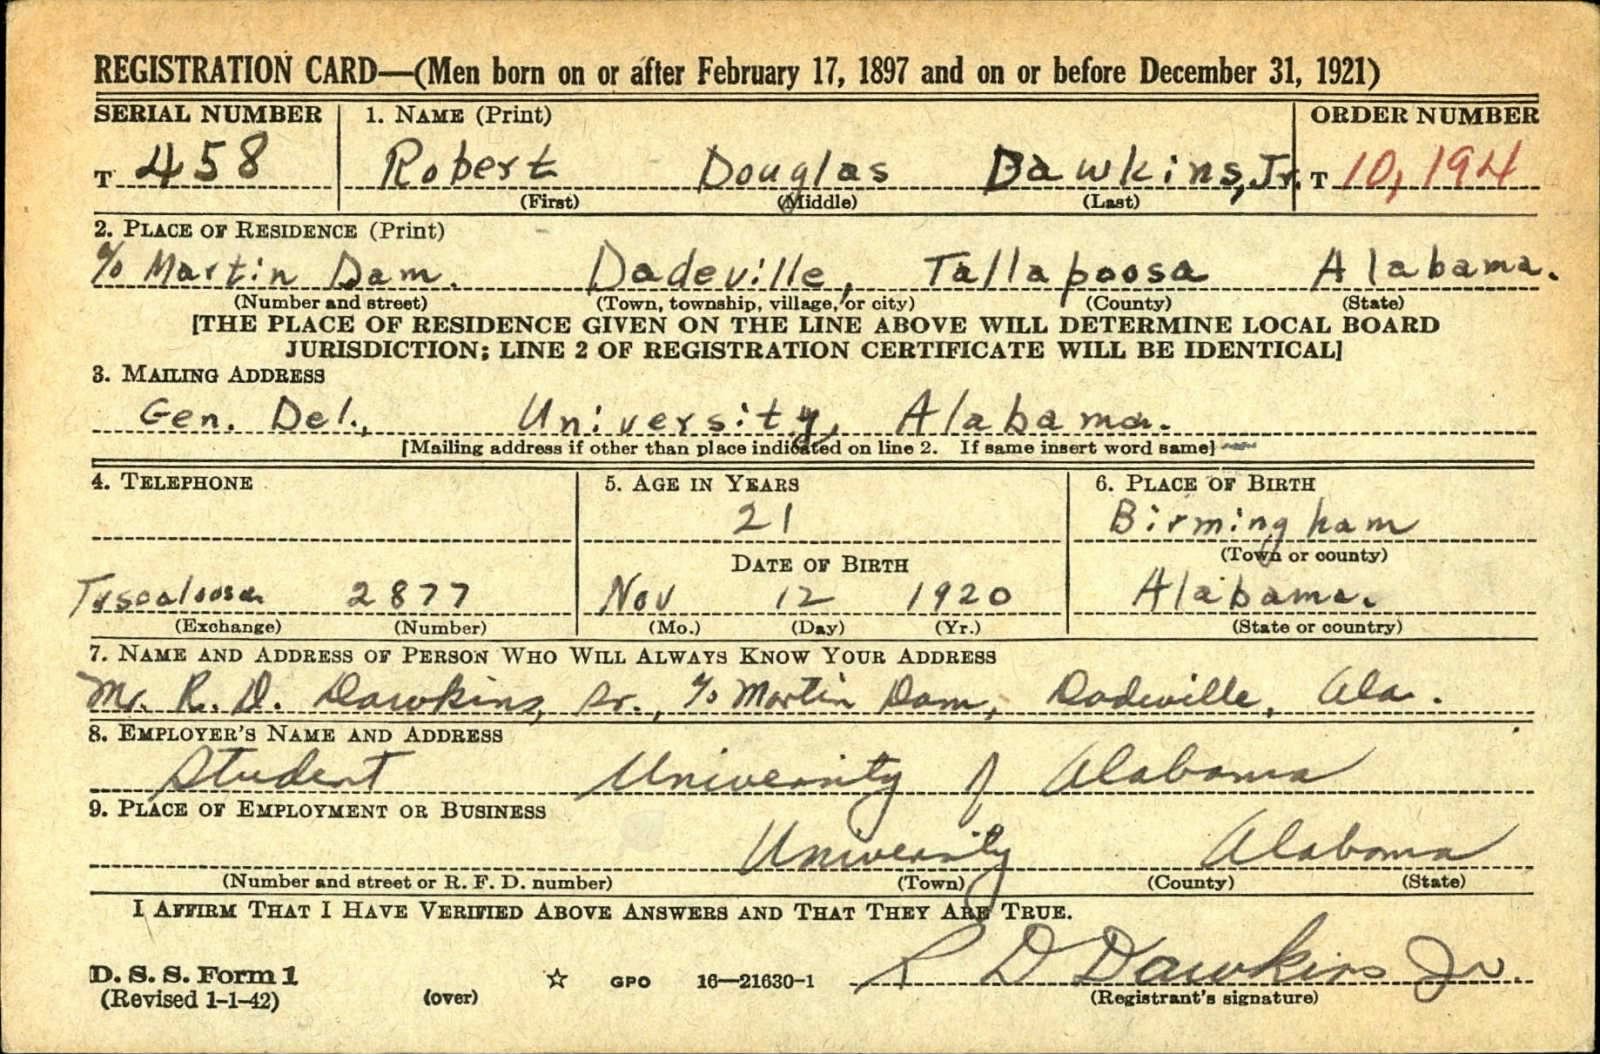 REGISTRATION CARD—(Men born on or after February 17, 1897 and on or before December 31, 1921)
SERIAL NUMBER 1. NAME (Print) ORDER NUMBER
T 458 Robert Douglas Dawkins, Jr. T 10,194
(First) (Middle) (Last)
2. PLACE OF RESIDENCE (Print)
c/o Martin Dam. Dadeville, Tallapoosa Alabama.
(Number and street) (Town, township, village, or city) (County) (State)
[THE PLACE OF RESIDENCE GIVEN ON THE LINE ABOVE WILL DETERMINE LOCAL BOARD
JURISDICTION; LINE 2 OF REGISTRATION CERTIFICATE WILL BE IDENTICAL]
3. MAILING ADDRESS
Gen. Del., University, Alabama.
[Mailing address if other than place indicated on line 2. If same insert word same]
4. TELEPHONE 5. AGE IN YEARS 6. PLACE OF BIRTH
21 Birmingham
DATE OF BIRTH (Town or county)
Tuscaloosa 2877 Nov 12 1920 Alabama.
(Exchange) (Number) (Mo.) (Day) (Yr.) (State or country)
7. NAME AND ADDRESS OF PERSON WHO WILL ALWAYS KNOW YOUR ADDRESS
Mr. R. D. Dawkins, Sr., c/o Martin Dam, Dadeville, Ala.
8. EMPLOYER'S NAME AND ADDRESS
Student University of Alabama
9. PLACE OF EMPLOYMENT OR BUSINESS
University Alabama
(Number and street or R. F. D. number) (Town) (County) (State)
I AFFIRM THAT I HAVE VERIFIED ABOVE ANSWERS AND THAT THEY ARE TRUE.
R D Dawkins Jr.
D. S. S. Form 1
(Revised 1-1-42) (over) ☆ GPO 16—21630-1 (Registrant's signature)